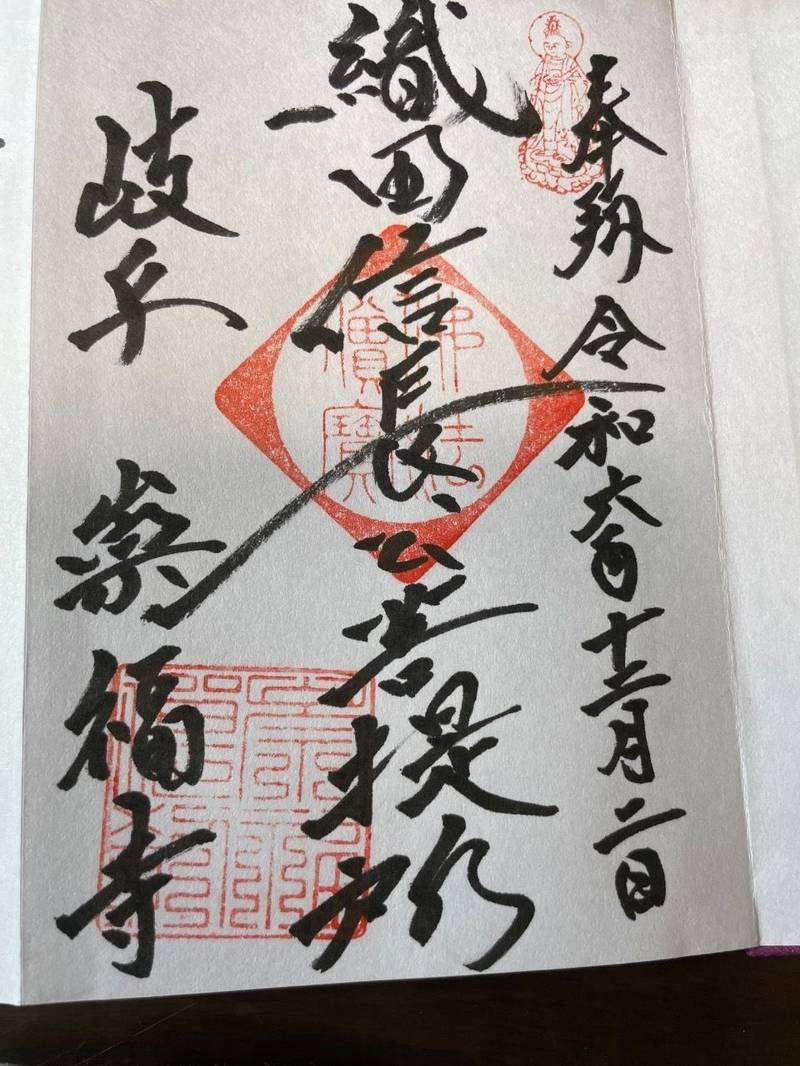 奉拝 令和六年十二月二日
織田信長公菩提所
岐阜 崇福寺
佛法僧寶